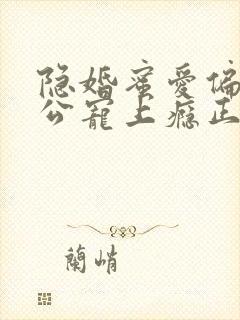 隐婚蜜爱偏
公寵上瘾正
蘭峭